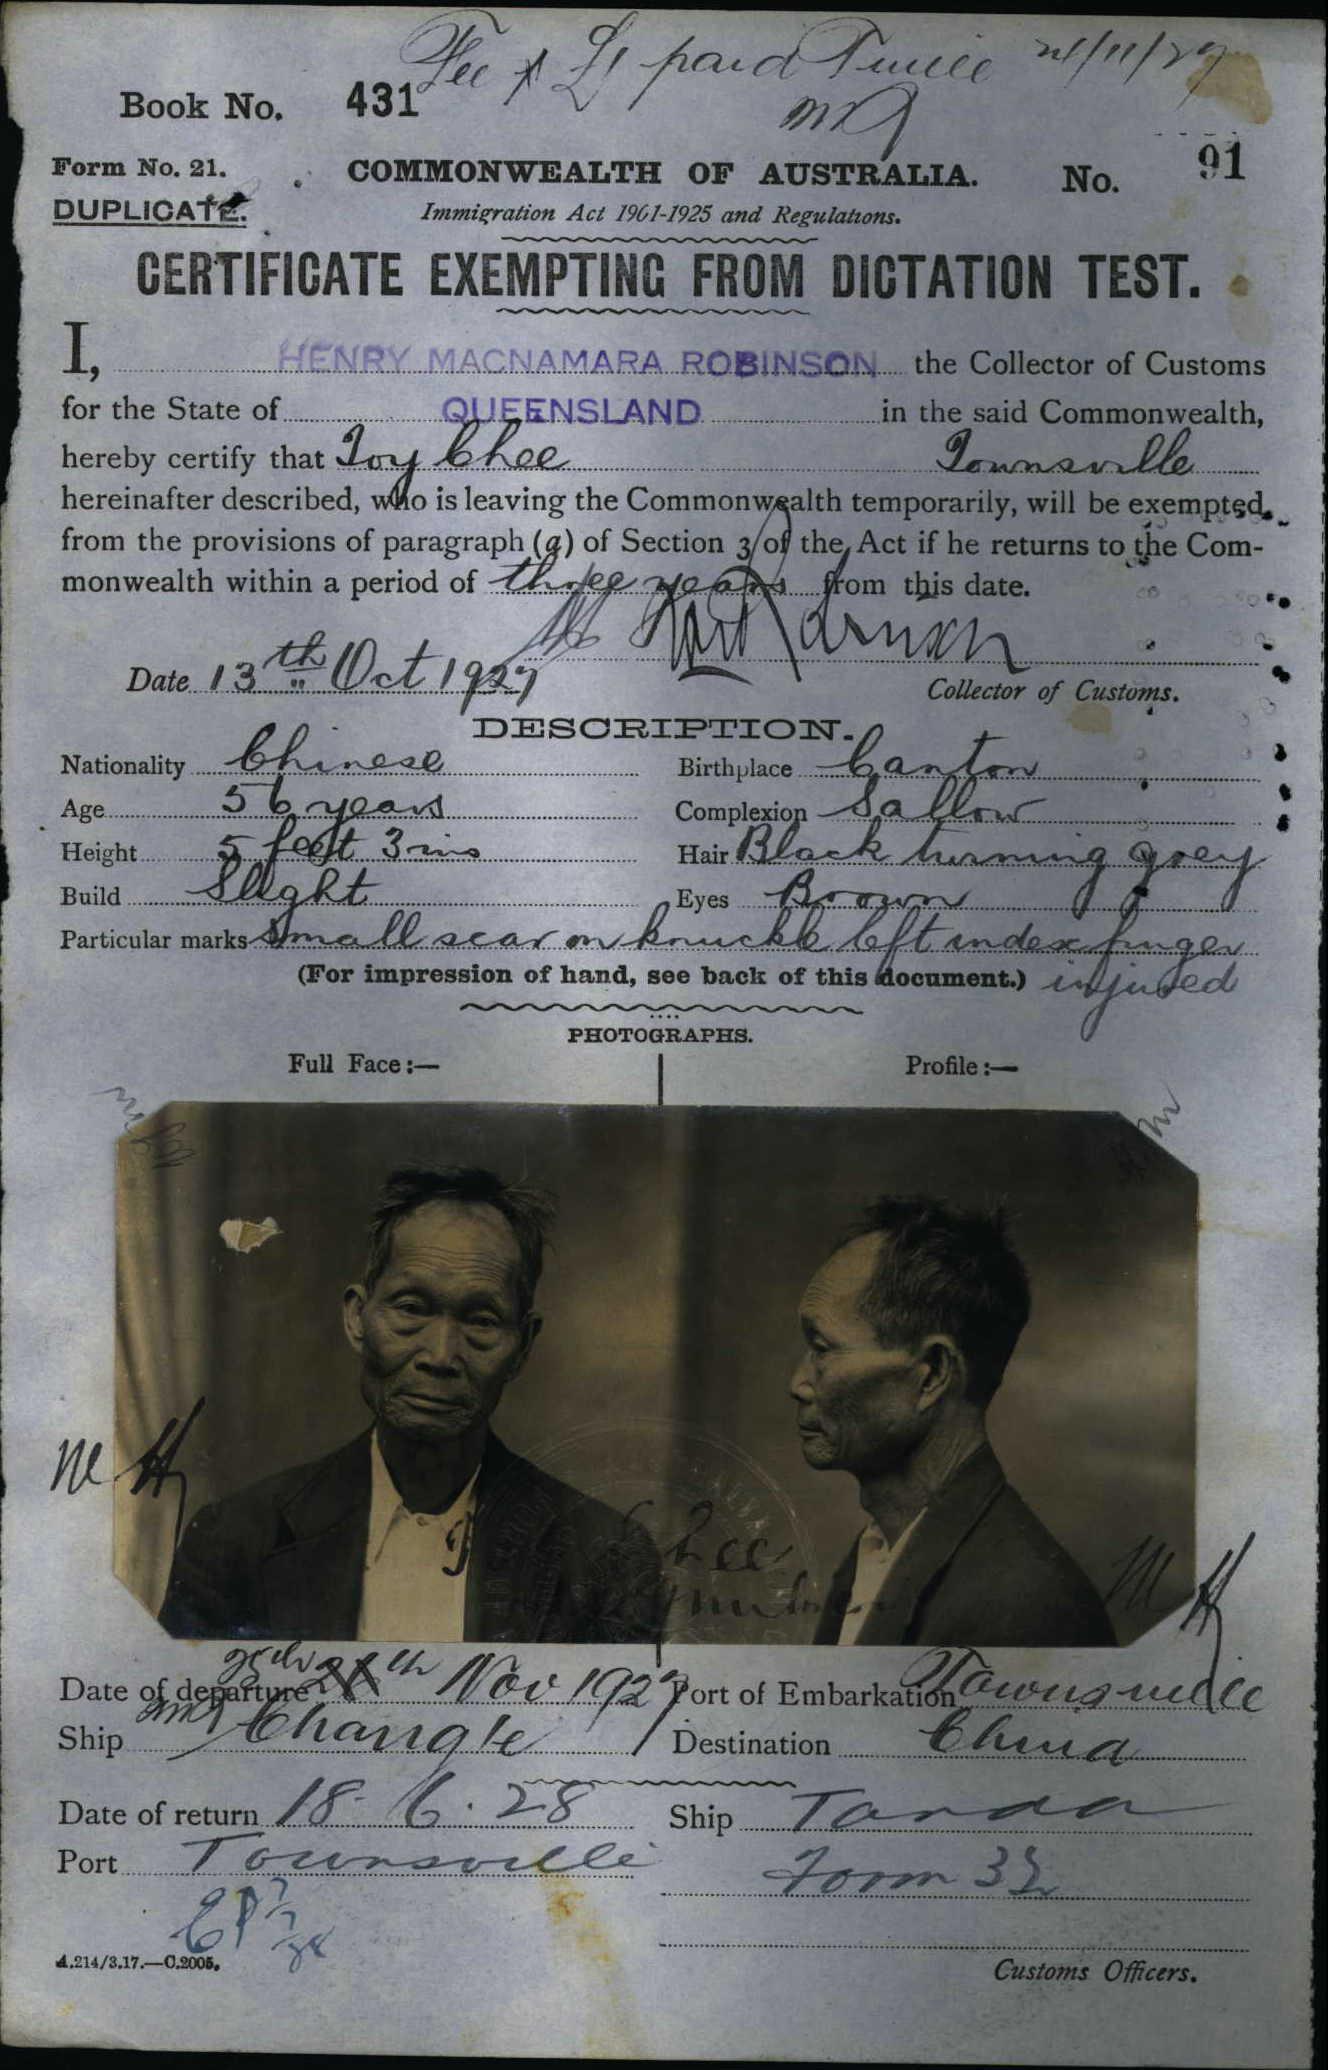 Fee of £1 paid Tville 24/11/27
Book No. 431
Form No. 21. COMMONWEALTH OF AUSTRALIA. No. 91
DUPLICATE. Immigration Act 1901-1925 and Regulations.
CERTIFICATE EXEMPTING FROM DICTATION TEST.
I, HENRY MACNAMARA ROBINSON the Collector of Customs
for the State of QUEENSLAND in the said Commonwealth,
hereby certify that Toy Chee Townsville
hereinafter described, who is leaving the Commonwealth temporarily, will be exempted
from the provisions of paragraph (a) of Section 3 of the Act if he returns to the Com-
monwealth within a period of three years from this date.
Date 13th Oct 1927
Collector of Customs.
DESCRIPTION.
Nationality Chinese Birthplace Canton
Age 56 years Complexion Sallow
Height 5 feet 3 ins Hair Black turning grey
Build Slight Eyes Brown
Particular marks Small scar on knuckle left index finger
(For impression of hand, see back of this document.) injured
PHOTOGRAPHS.
Full Face:— Profile:—
M H
Chee
M H
Date of departure 25th 24th Nov 1927 Port of Embarkation Townsville
Ship Changte Destination China
Date of return 18.6.28 Ship Tanda
Port Townsville Form 32
A.214/3.17.—C.2005.
Customs Officers.